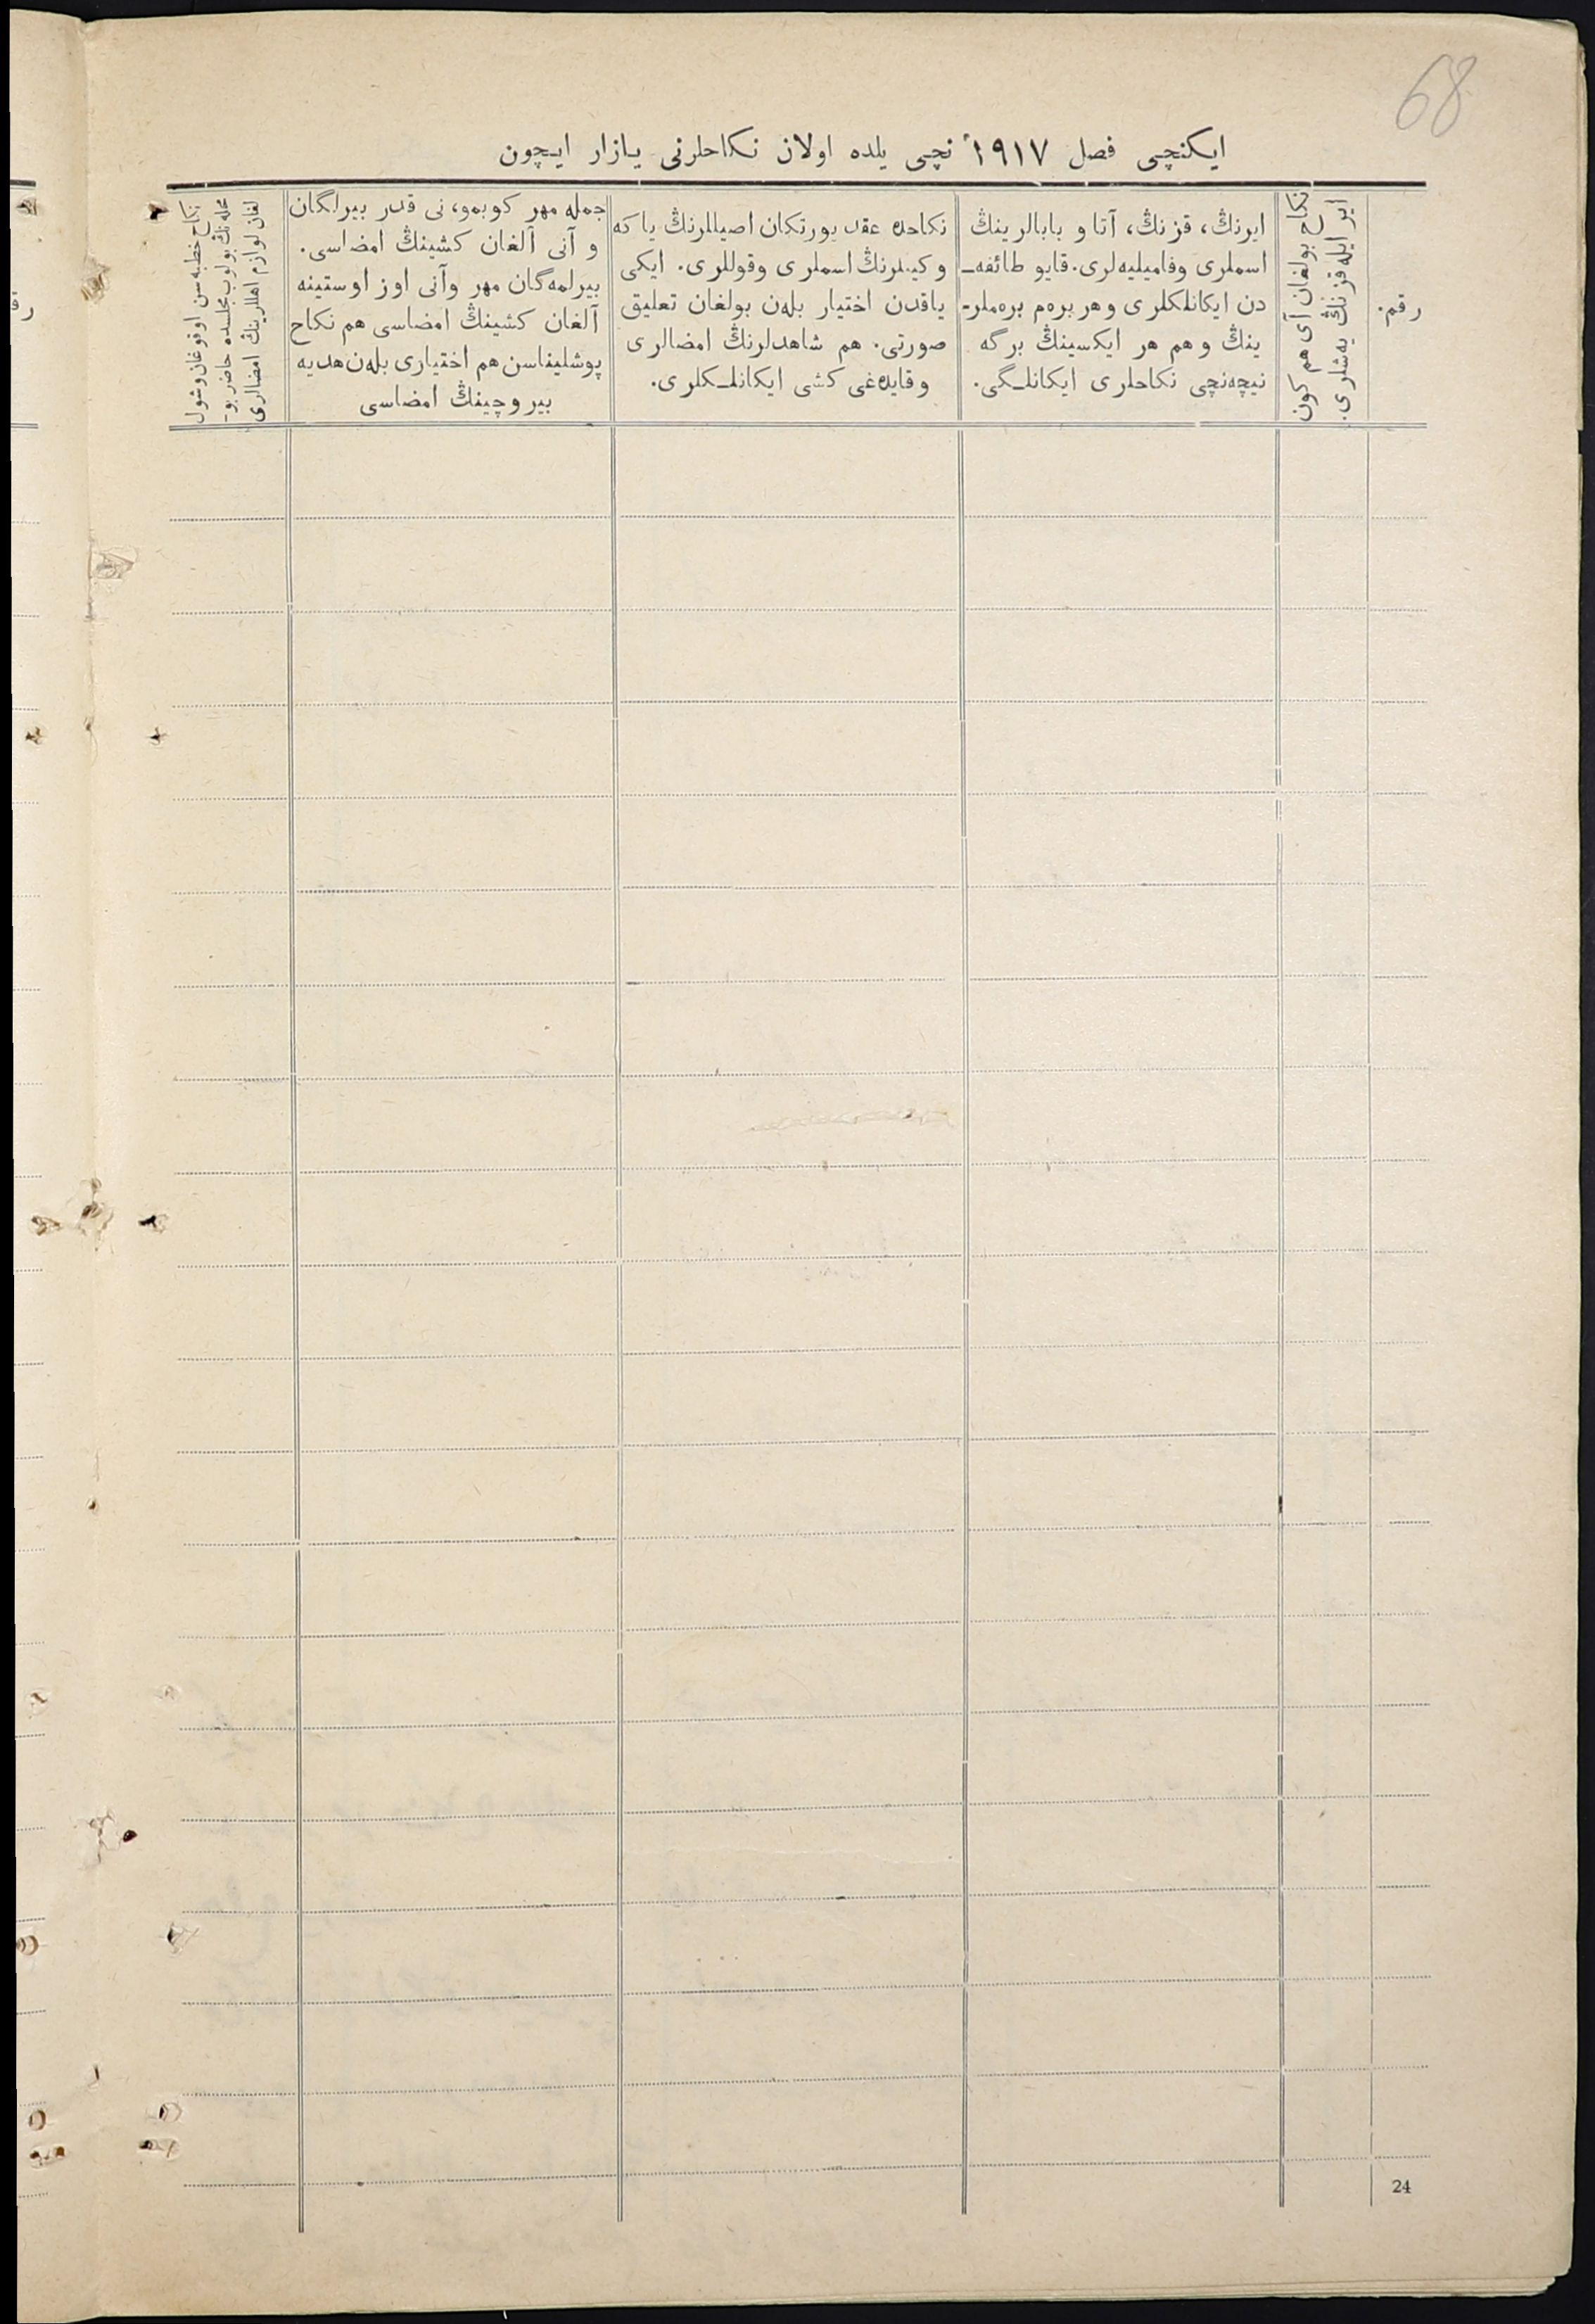 68
ایکنچی فصل ۱۹۱۷ نچی یلده اولان نکاحلرنی یازار ایچون
رقم.
نکاح بولغان آی هم کون
ایر ایله قزنڭ یه‌شلری.
ایرنڭ، قزنڭ، آتا و بابالرینڭ
اسملری وفامیلیه‌لری. قایو طائفه‌ـ
دن ایکانلکلری و هر بره‌م بره‌ملرـ
ینڭ و هم هر ایکسینڭ برگه
نیچه‌نچی نکاحلری ایکانلـگی.
نکاحده عقد یورتکان اصیللرنڭ یا که
وکیللرنڭ اسملری وقوللری. ایکی
یاقدن اختیار بله‌ن بولغان تعلیق
صورتی. هم شاهدلرنڭ امضالری
وقایده‌غی کشی ایکانلـکلری.
جمله مهر کوبمو، نی قدر بیرلگان
و آنی آلغان کشینڭ امضاسی.
بیرلمه‌گان مهر وآنی اوز اوستینه
آلغان کشینڭ امضاسی هم نکاح
پوشلیناسن هم اختیاری بله‌ن هدیه
بیروچینڭ امضاسی
نکاح خطبه‌سن اوقوغان وشول
محله‌نڭ بولوب مجلسده حاضر بوـ
لغان لوازم اهللرینڭ امضالری
24